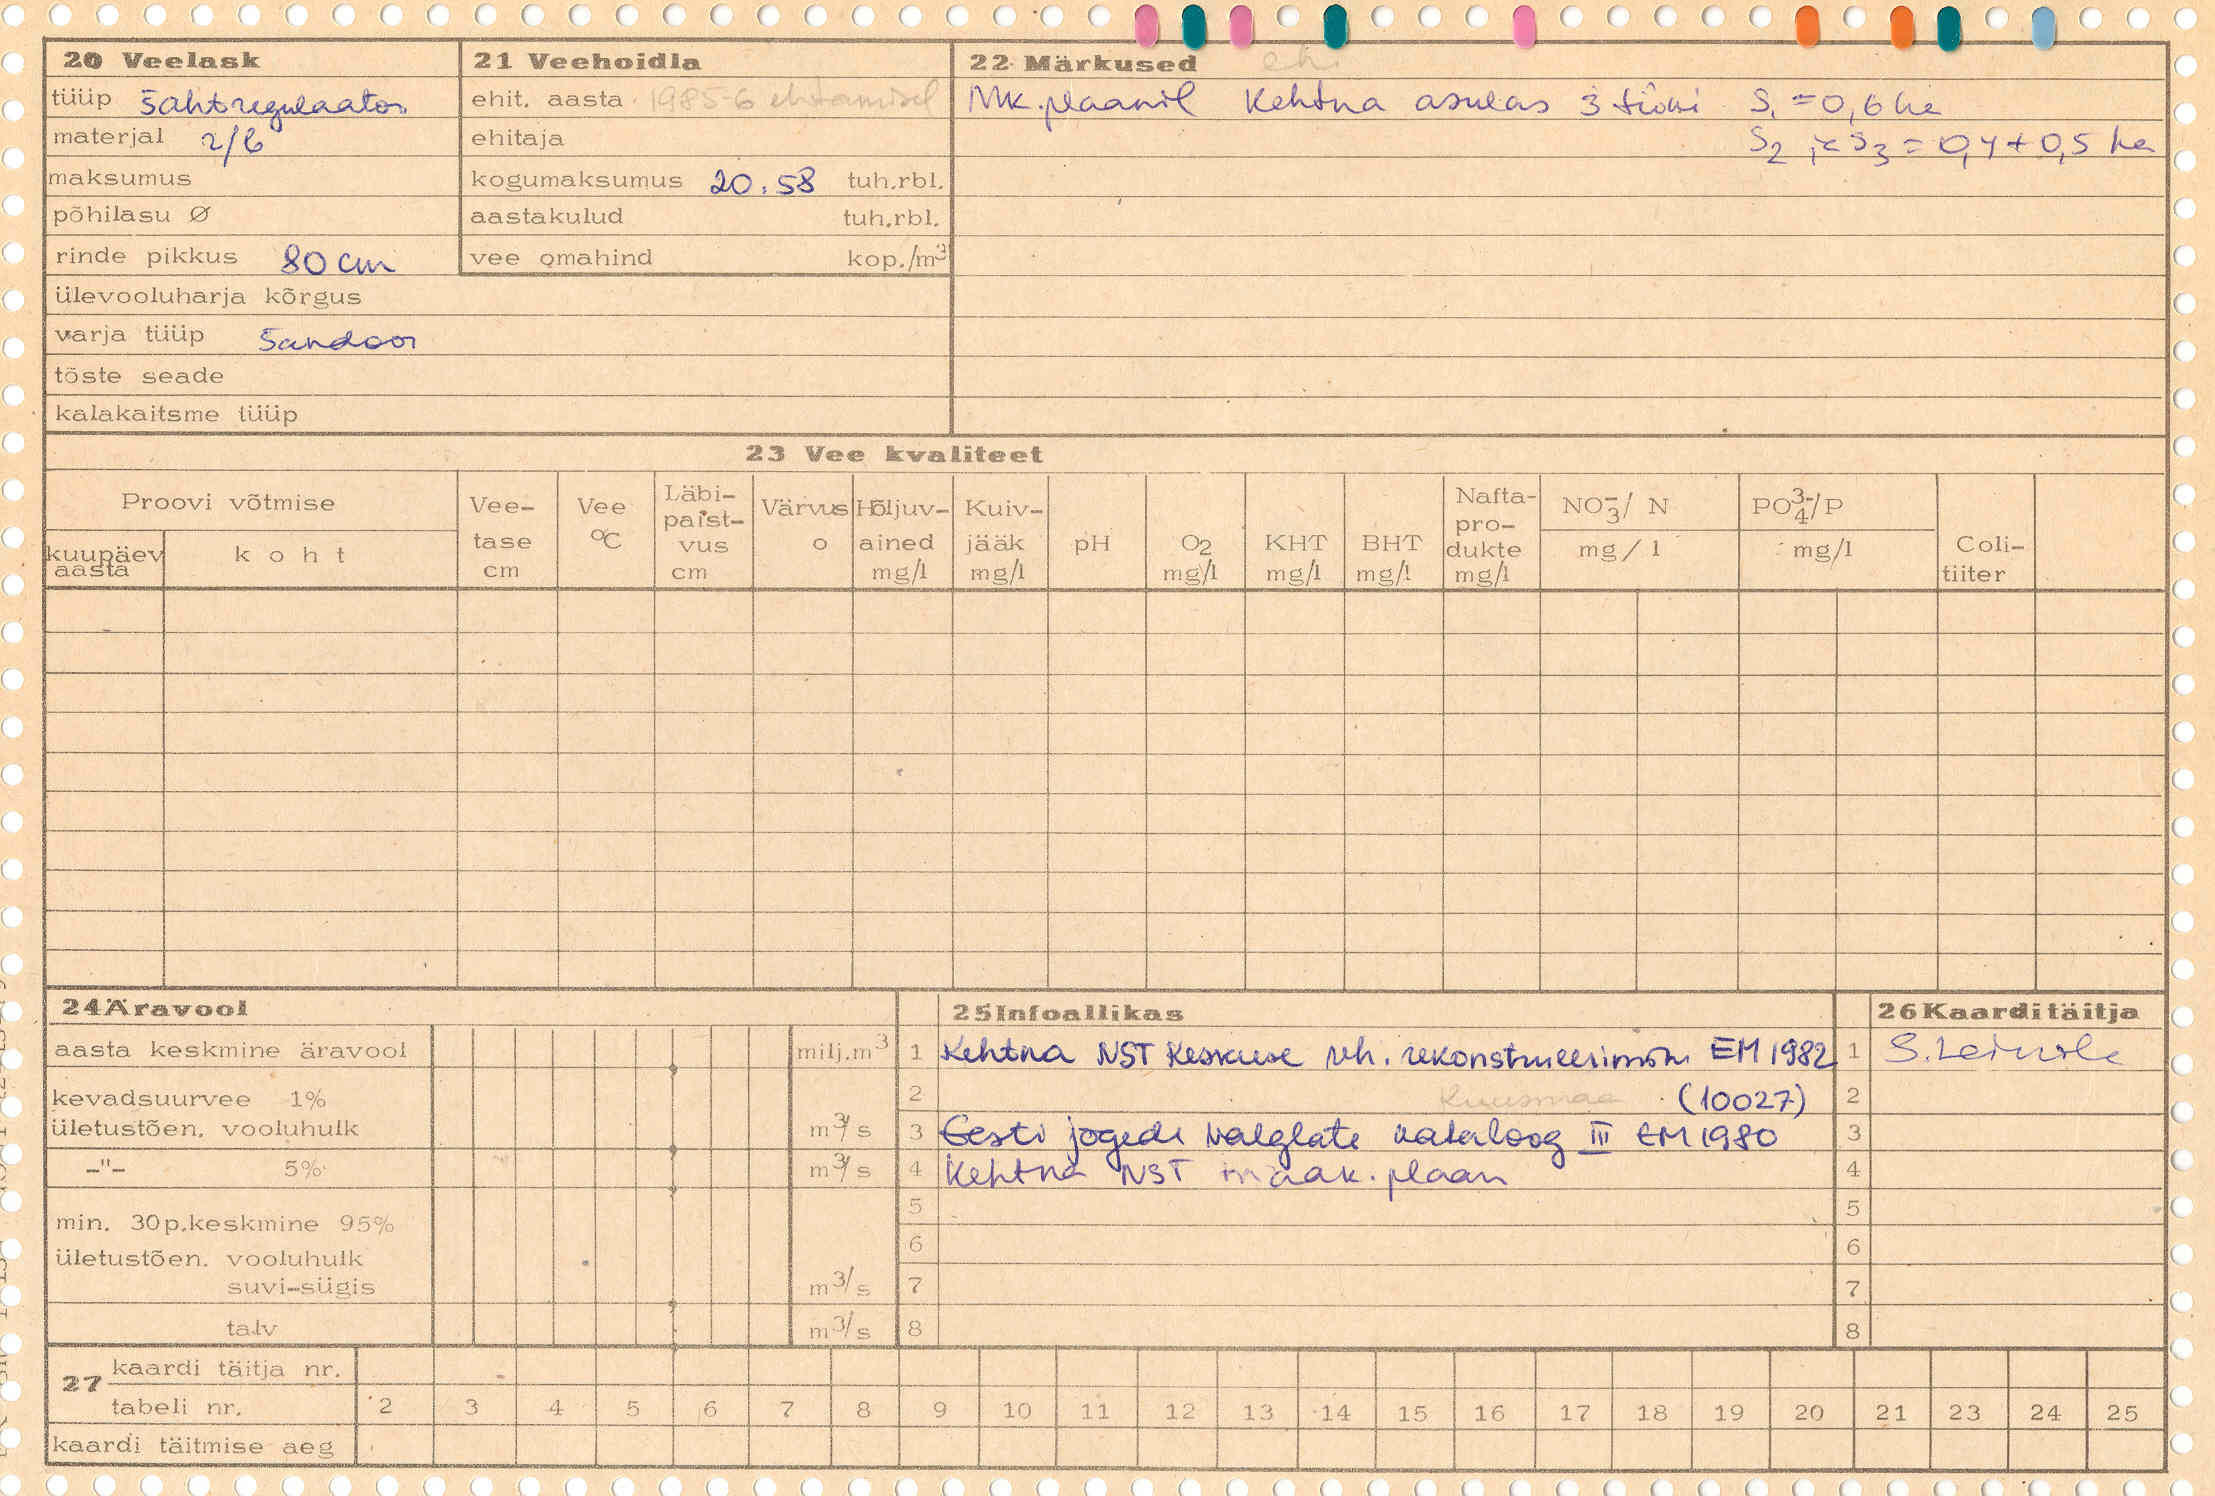 20 Veelask
tüüp šahtregulaator
materjal r/b
maksumus
põhilasu Ø
rinde pikkus 80 cm
ülevooluharja kõrgus
varja tüüp šandoor
töste seade
kalakaitsme tüüp
21 Veehoidla
ehit. aasta 1985-6 ehitamisel
ehitaja
kogumaksumus 20.58 tuh.rbl.
aastakulud tuh.rbl.
vee omahind kop./m³
22 Märkused eh.
MK.plaanil Kehtna asulas 3 tiiki S₁ = 0,6 ha
S₂ ja S₃ = 0,4 + 0,5 ha
23 Vee kvaliteet
Proovi võtmise
kuupäev aasta
koht
Vee-
tase
cm
Vee
°C
Läbi-
paist-
vus
cm
Värvus
o
Hõljuv-
ained
mg/l
Kuiv-
jääk
mg/l
pH
O₂
mg/l
KHT
mg/l
BHT
mg/l
Nafta-
pro-
dukte
mg/l
NO₃⁻/ N
mg/l
PO₄³⁻/P
mg/l
Coli-
tiiter
24 Äravool
aasta keskmine äravool milj.m³
kevadsuurvee 1%
ületustõen. vooluhulk m³/s
-"- 5% m³/s
min. 30p.keskmine 95%
ületustõen. vooluhulk
suvi-sügis m³/s
talv m³/s
25 Infoallikas
1 Kehtna NST Keskuse vh. rekonstrueerimine EM 1982
2 Kuusmaa (10027)
3 Eesti jõgede valglate kataloog III EM 1980
4 Kehtna NST maak.plaan
5
6
7
8
26 Kaarditäitja
1
2
3
4
5
6
7
8
27 kaardi täitja nr.
tabeli nr. 2 3 4 5 6 7 8 9 10 11 12 13 14 15 16 17 18 19 20 21 23 24 25
kaardi täitmise aeg